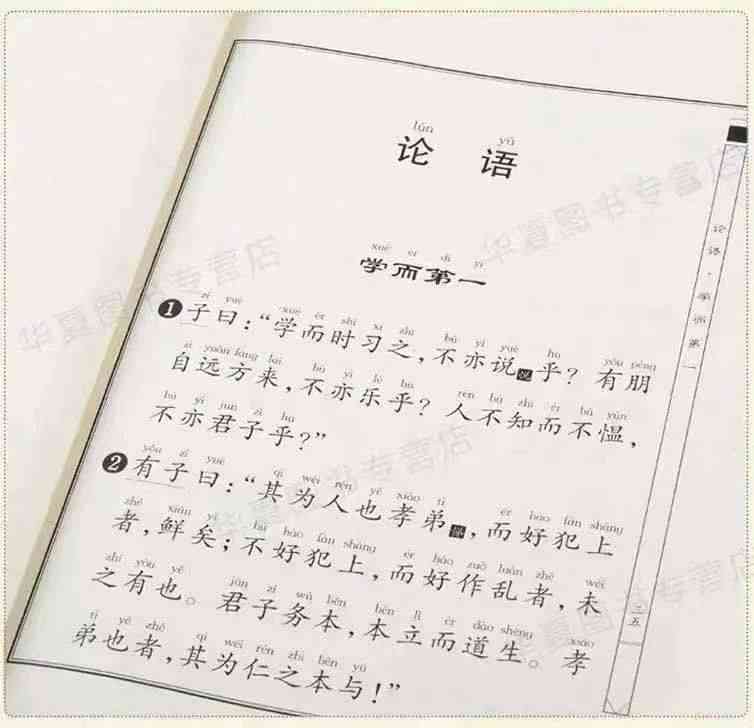 lún yǔ
论 语
xué ér dì yī
学而第一
zǐ yuē xué ér shí xí zhī bú yì yuè hū yǒu péng
❶子曰：“学而时习之，不亦说乎？有朋
zì yuǎn fāng lái bú yì lè hū rén bù zhī ér bú yùn
自远方来，不亦乐乎？人不知而不愠，
bú yì jūn zǐ hū
不亦君子乎？”
yǒu zǐ yuē qí wéi rén yě xiào tì ér hào fàn shàng
❷有子曰：“其为人也孝弟，而好犯上
zhě xiǎn yǐ bú hào fàn shàng ér hào zuò luàn zhě wèi
者，鲜矣；不好犯上，而好作乱者，未
zhī yǒu yě jūn zǐ wù běn běn lì ér dào shēng xiào
之有也。君子务本，本立而道生。孝
tì yě zhě qí wéi rén zhī běn yú
弟也者，其为仁之本与！”
论语·学而第一
华夏图书专营店
华夏图书专营店
华夏图书专营店
华夏图书专营店